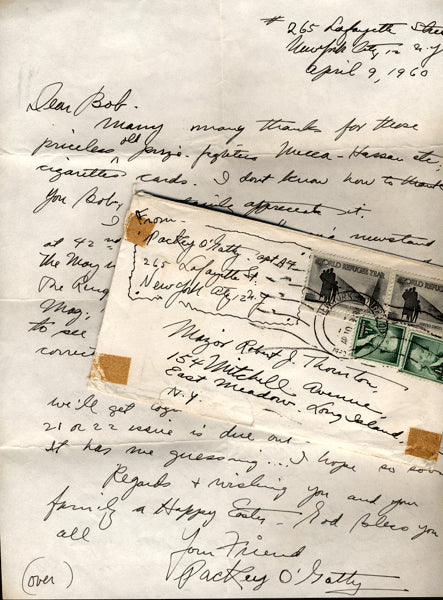 # 265 Lafayette Street
New York City, 12 N.Y.
April 9, 1960
Dear Bob.
Many many thanks for those
priceless old prize-fighters Mecca-Hassan etc,
cigarettes cards. I don't know how to thank
You Boby, appreciate it.
I newsstand
at 42 nd
the May
The Ring
Mag,
to see
correct
From-
Packey O'Gatty apt A4
265 Lafayette St.
New York City 12 N.Y.
WORLD REFUGEE YEAR
WORLD REFUGEE YEAR
Major Robert J. Thornton,
154 Mitchell Avenue,
East Meadow, Long Island,
N.Y.
we'll get
21 or 22 issue is due out
It has me guessing... I hope so soon
Regards + wishing you and your
family a Happy Easter - God bless you
all Your Friend
(over) Packey O'Gatty